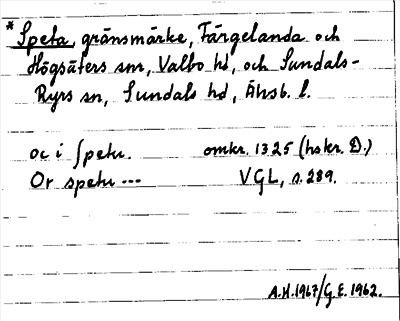 * Speta, gränsmärke, Färgelanda och
Högsäters snr, Valbo hd, och Sundals-
Ryrs sn, Sundals hd, Älvsb. l.
oc i ſpetu. omkr. 1325 (hskr. D.)
Or spetu --- VGL, s. 289.
A.H. 1967/G.E. 1962.